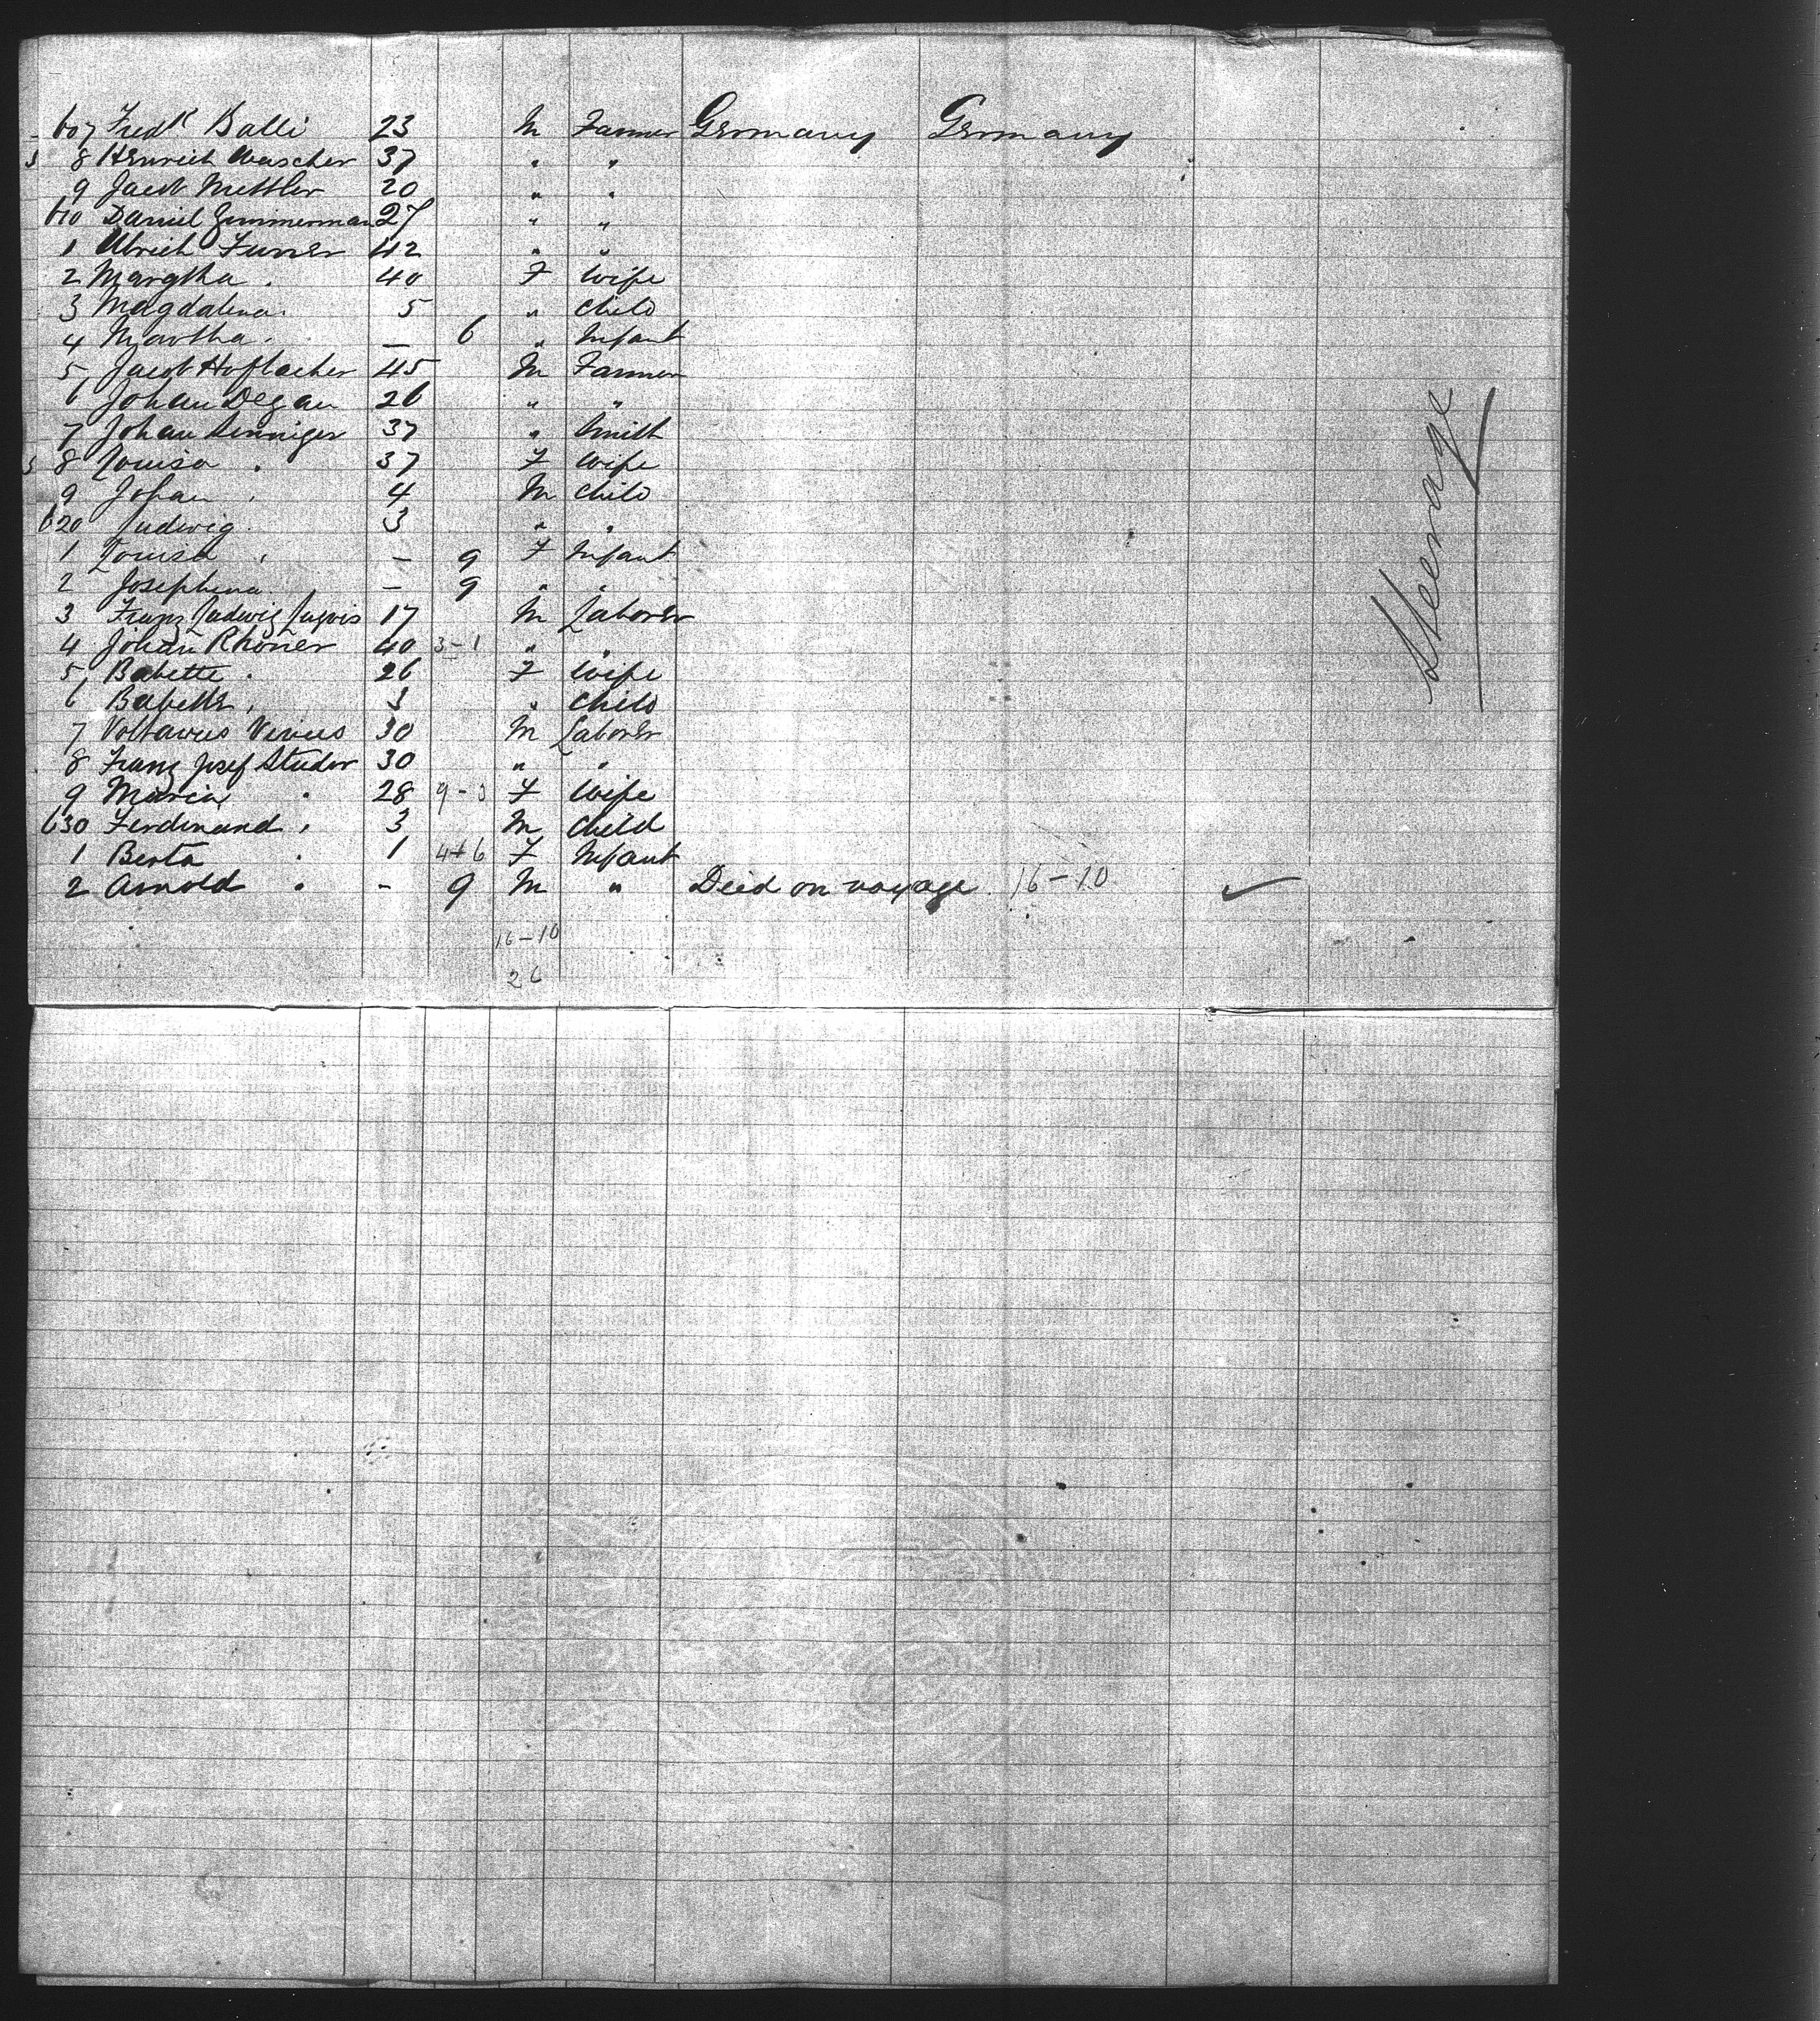 607 Fredk Balli 23 M Farmer Germany Germany
8 Heinrich Wascher 37 " "
9 Jacob Mettler 20 " "
610 Daniel Zimmerman 27 " "
1 Ulrich Furrer 42 " "
2 Margtha . 40 F Wife
3 Magdalena . 5 " Child
4 Martha . — 6 " Infant
5 Jacob Hoflacher 45 M Farmer
6 Johan Degan 26 " "
7 Johan Senniger 37 " Smith
8 Louisa . 37 F Wife
9 Johan . 4 M Child
620 Ludwig . 3 " "
1 Louisa . — 9 F Infant
2 Josephina . — 9 " "
3 Franz Ludwig 17 M Laborer
4 Johan Rhoner 40 3-1 " "
5 Babette . 26 F Wife
6 Babette . 3 " Child
7 30 M Laborer
8 Franz Josef Studer 30 " "
9 Maria . 28 F Wife
630 Ferdinand . 3 M Child
1 Berta . 1 4+6 F Infant
2 Arnold . - 9 M " Deid on voyage 16-10
16-10
26
Steerage